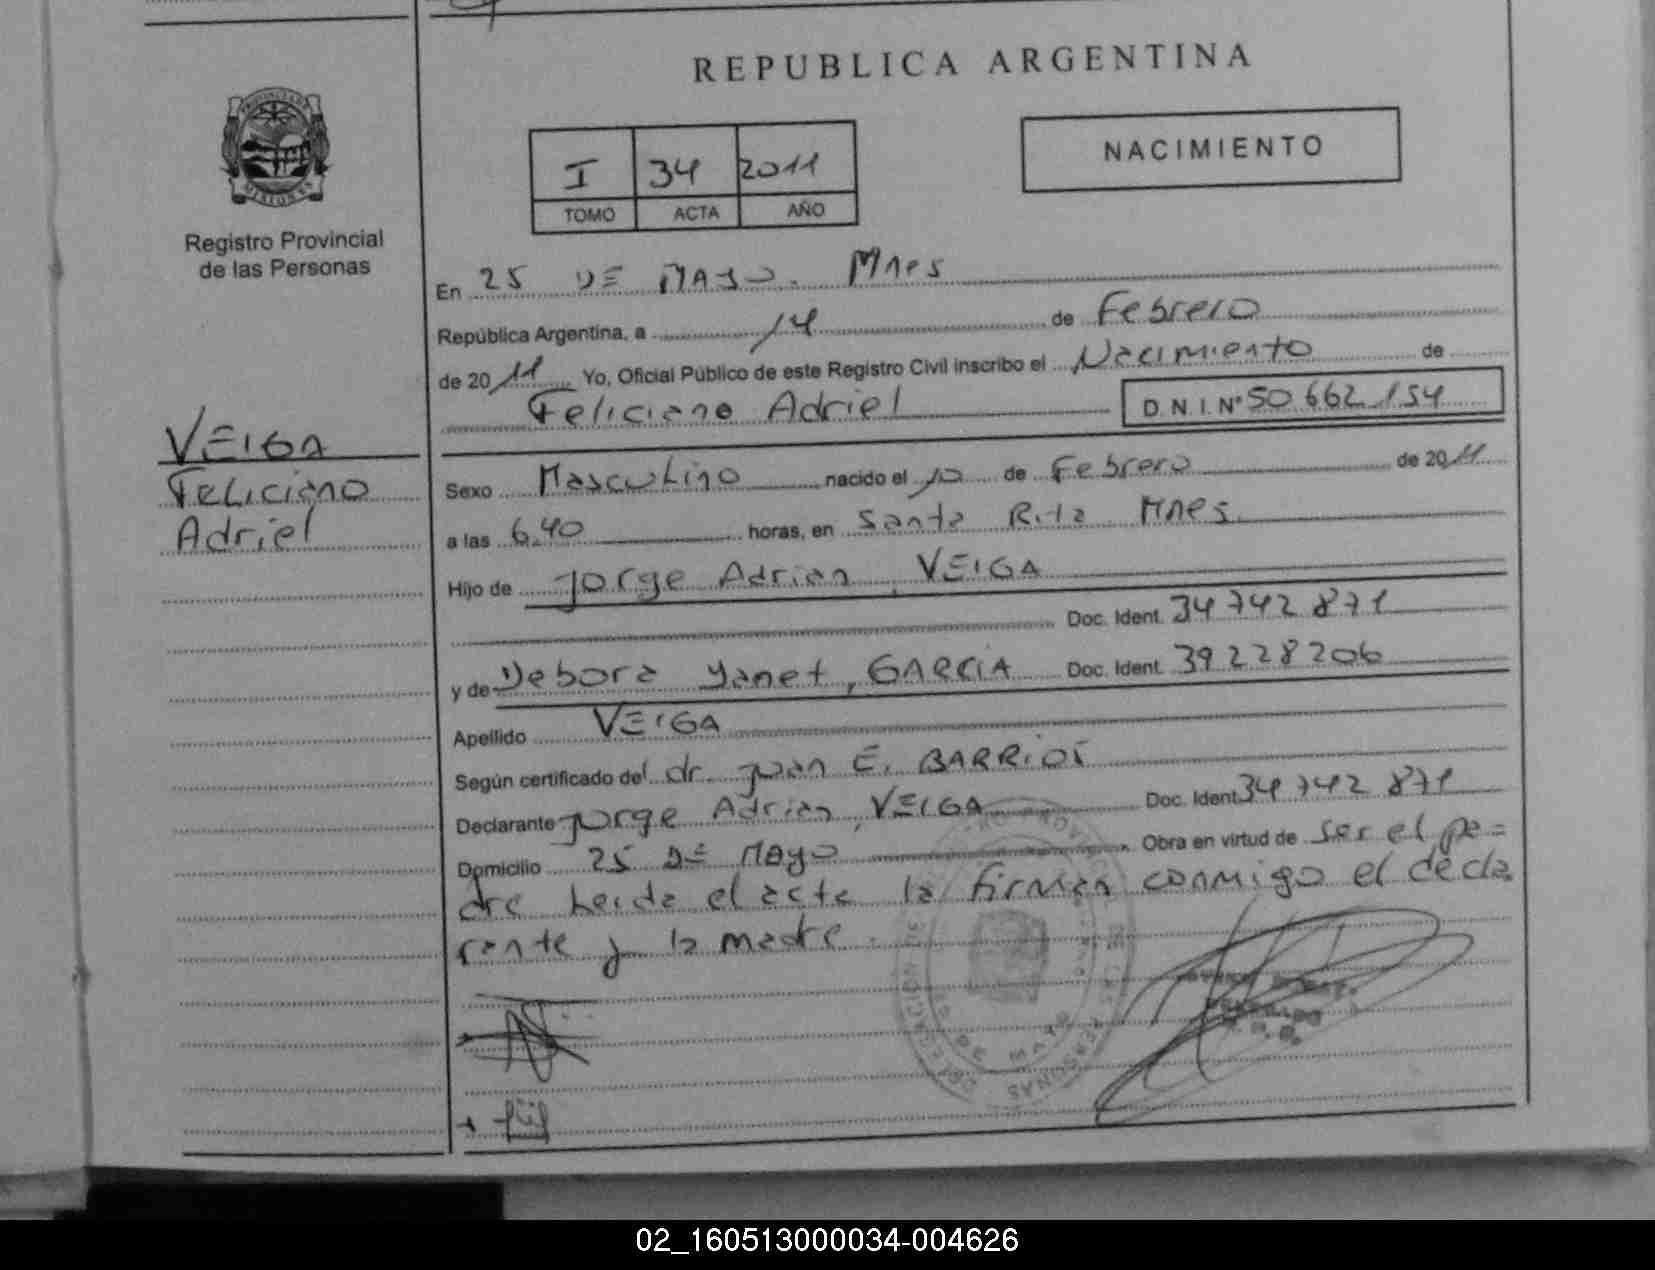 REPUBLICA ARGENTINA
I 34 2011
TOMO ACTA AÑO
NACIMIENTO
PROVINCIA DE
MISIONES
Registro Provincial
de las Personas
VEIGA
Feliciano
Adriel
En 25 DE MAYO. Mnes
República Argentina, a 14 de Febrero
de 2011 Yo, Oficial Público de este Registro Civil inscribo el Nacimiento de
Feliciano Adriel D.N.I. Nº 50 662 154
Sexo Masculino nacido el 10 de Febrero de 2011
a las 6.40 horas, en Santa Rita Mnes.
Hijo de Jorge Adrian, VEIGA
Doc. Ident. 34 742 871
y de Debora Yanet, GARCIA Doc. Ident. 39 228 206
Apellido VEIGA
Según certificado del dr. Juan E. BARRIOS
Declarante Jorge Adrian, VEIGA Doc. Ident. 34 742 871
Domicilio 25 DE MAYO Obra en virtud de ser el pa=
dre leida el acta la firman conmigo el decla
rante y la madre.
02_160513000034-004626